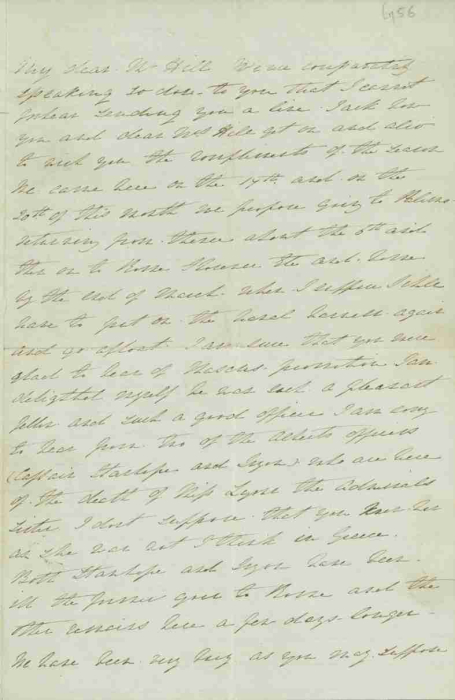 656
My dear Mr Hill We're comparatively
speaking so close to you that I cannot
forbear sending you a line. I ask how
you and dear Mrs Hill get on and also
to wish you the compliments of the season
We came here on the 14th and on the
20th of this month we propose going to
returning from there about the 6th and
then on to Rome Florence &c and home
by the end of March when I suppose I shall
have to put on the naval harness again
and go afloat. I am sure that you were
glad to hear of promotion I am
delighted myself he was such a pleasant
fellow and such a good officer I am sorry
to hear from two of the officers
(Captain Stanhope and ) who are here
of the death of Miss Lyons the Admirals
sister I dont suppose that you knew her
as she was not I think in Greece.
Both Stanhope and have been
ill the former gone to Rome and the
other remains here a few days longer
We have been very busy as you may suppose